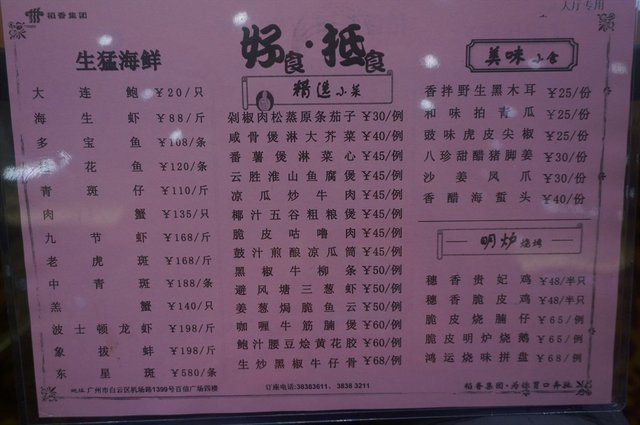 稻香集团
大厅专用
生猛海鲜
大连鲍 ¥20/只
海生虾 ¥88/斤
多宝鱼 ¥108/条
花鱼 ¥120/条
青斑仔 ¥110/斤
肉蟹 ¥135/只
九节虾 ¥168/斤
老虎斑 ¥168/斤
中青斑 ¥188/条
羔蟹 ¥140/只
波士顿龙虾 ¥198/斤
象拔蚌 ¥198/斤
东星斑 ¥580/条
地址:广州市白云区机场路1399号百信广场四楼
好食·抵食
精选小菜
剁椒肉松蒸原条茄子 ¥30/例
咸骨煲淋大芥菜 ¥40/例
番薯煲淋菜心 ¥45/例
云胜淮山鱼腐煲 ¥45/例
凉瓜炒牛肉 ¥45/例
椰汁五谷粗粮煲 ¥45/例
脆皮咕噜肉 ¥45/例
鼓汁煎酿凉瓜筒 ¥45/例
黑椒牛柳条 ¥50/例
避风塘三葱虾 ¥50/例
姜葱焗脆鱼云 ¥50/例
咖喱牛筋腩煲 ¥60/例
鲍汁腰豆烩黄花胶 ¥60/例
生炒黑椒牛仔骨 ¥68/例
订座电话:38383611、3838 3211
美味小食
香拌野生黑木耳 ¥25/份
和味拍青瓜 ¥25/份
豉味虎皮尖椒 ¥25/份
八珍甜醋猪脚姜 ¥30/份
沙姜凤爪 ¥30/份
香醋海蜇头 ¥40/份
明炉烧烤
穗香贵妃鸡 ¥48/半只
穗香脆皮鸡 ¥48/半只
脆皮烧腩仔 ¥65/例
脆皮明炉烧鹅 ¥65/例
鸿运烧味拼盘 ¥68/例
稻香集团·为你胃口奔驰